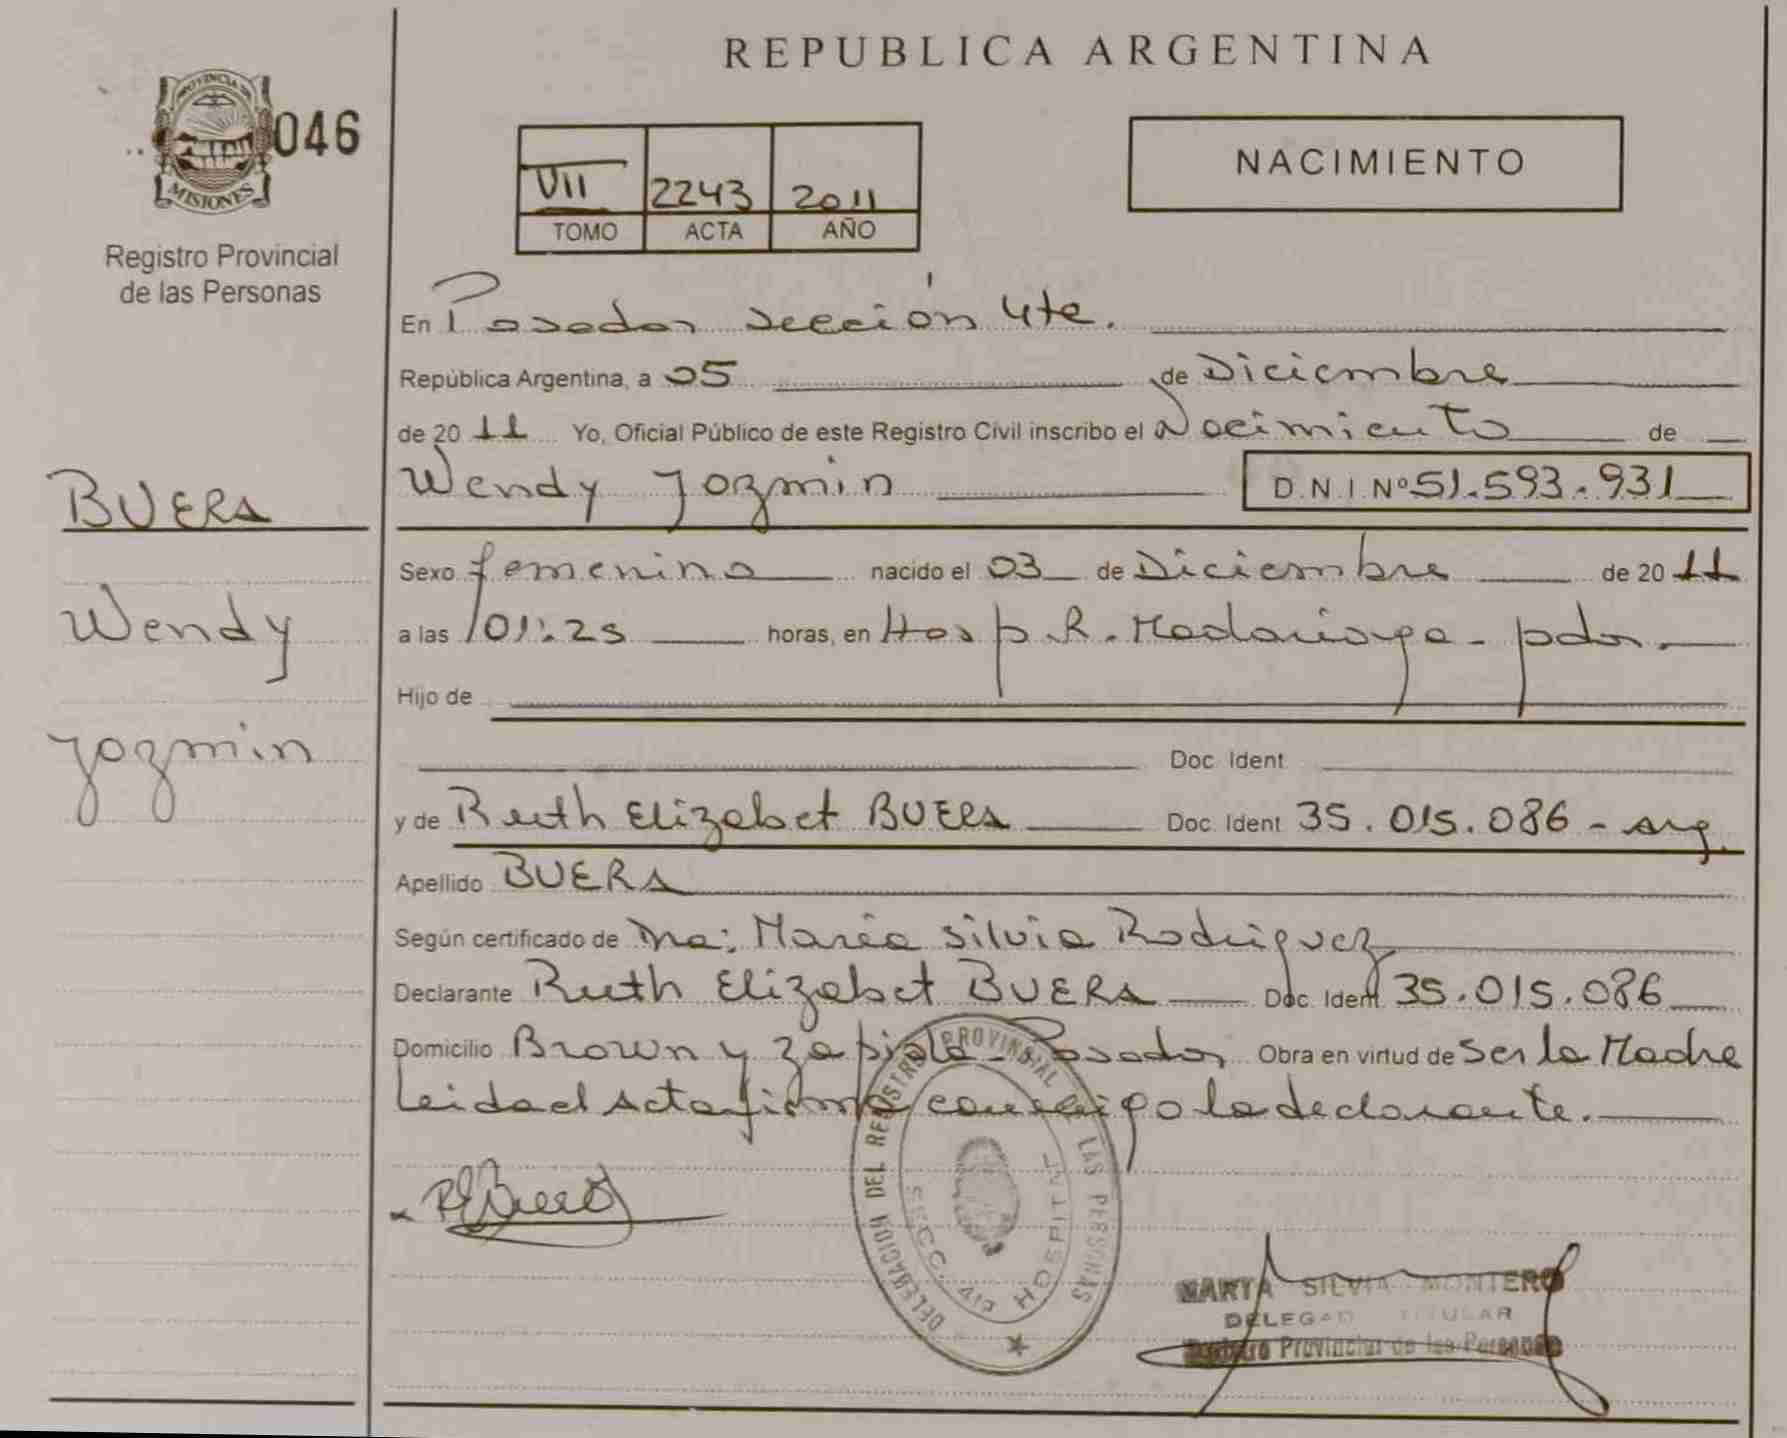 REPUBLICA ARGENTINA
PROVINCIA DE
MISIONES
046
Registro Provincial
de las Personas
VII 2243 2011
TOMO ACTA AÑO
NACIMIENTO
En Posadas sección 4ta.
República Argentina, a 05 de Diciembre
de 2011 Yo, Oficial Público de este Registro Civil inscribo el Nacimiento de
Wendy Yazmin D.N.I. Nº 51.593.931
BUERA
Wendy
Yazmin
Sexo femenino nacido el 03 de Diciembre de 2011
a las 01:25 horas, en Hosp. R. Madariaga - pdas.
Hijo de
Doc. Ident
y de Ruth Elizabet BUERA Doc. Ident 35.015.086 - arg.
Apellido BUERA
Según certificado de Dra: María Silvia Rodriguez
Declarante Ruth Elizabet BUERA Doc. Ident 35.015.086
Domicilio Brown y Zapiola - Posadas Obra en virtud de Ser la Madre
Leida el Acta firma conmigo la declarante.
DELEGACION DEL REGISTRO PROVINCIAL DE LAS PERSONAS
SECC. 4ta HOSPITAL
MARTA SILVIA MONTERO
DELEGADA TITULAR
Registro Provincial de las Personas